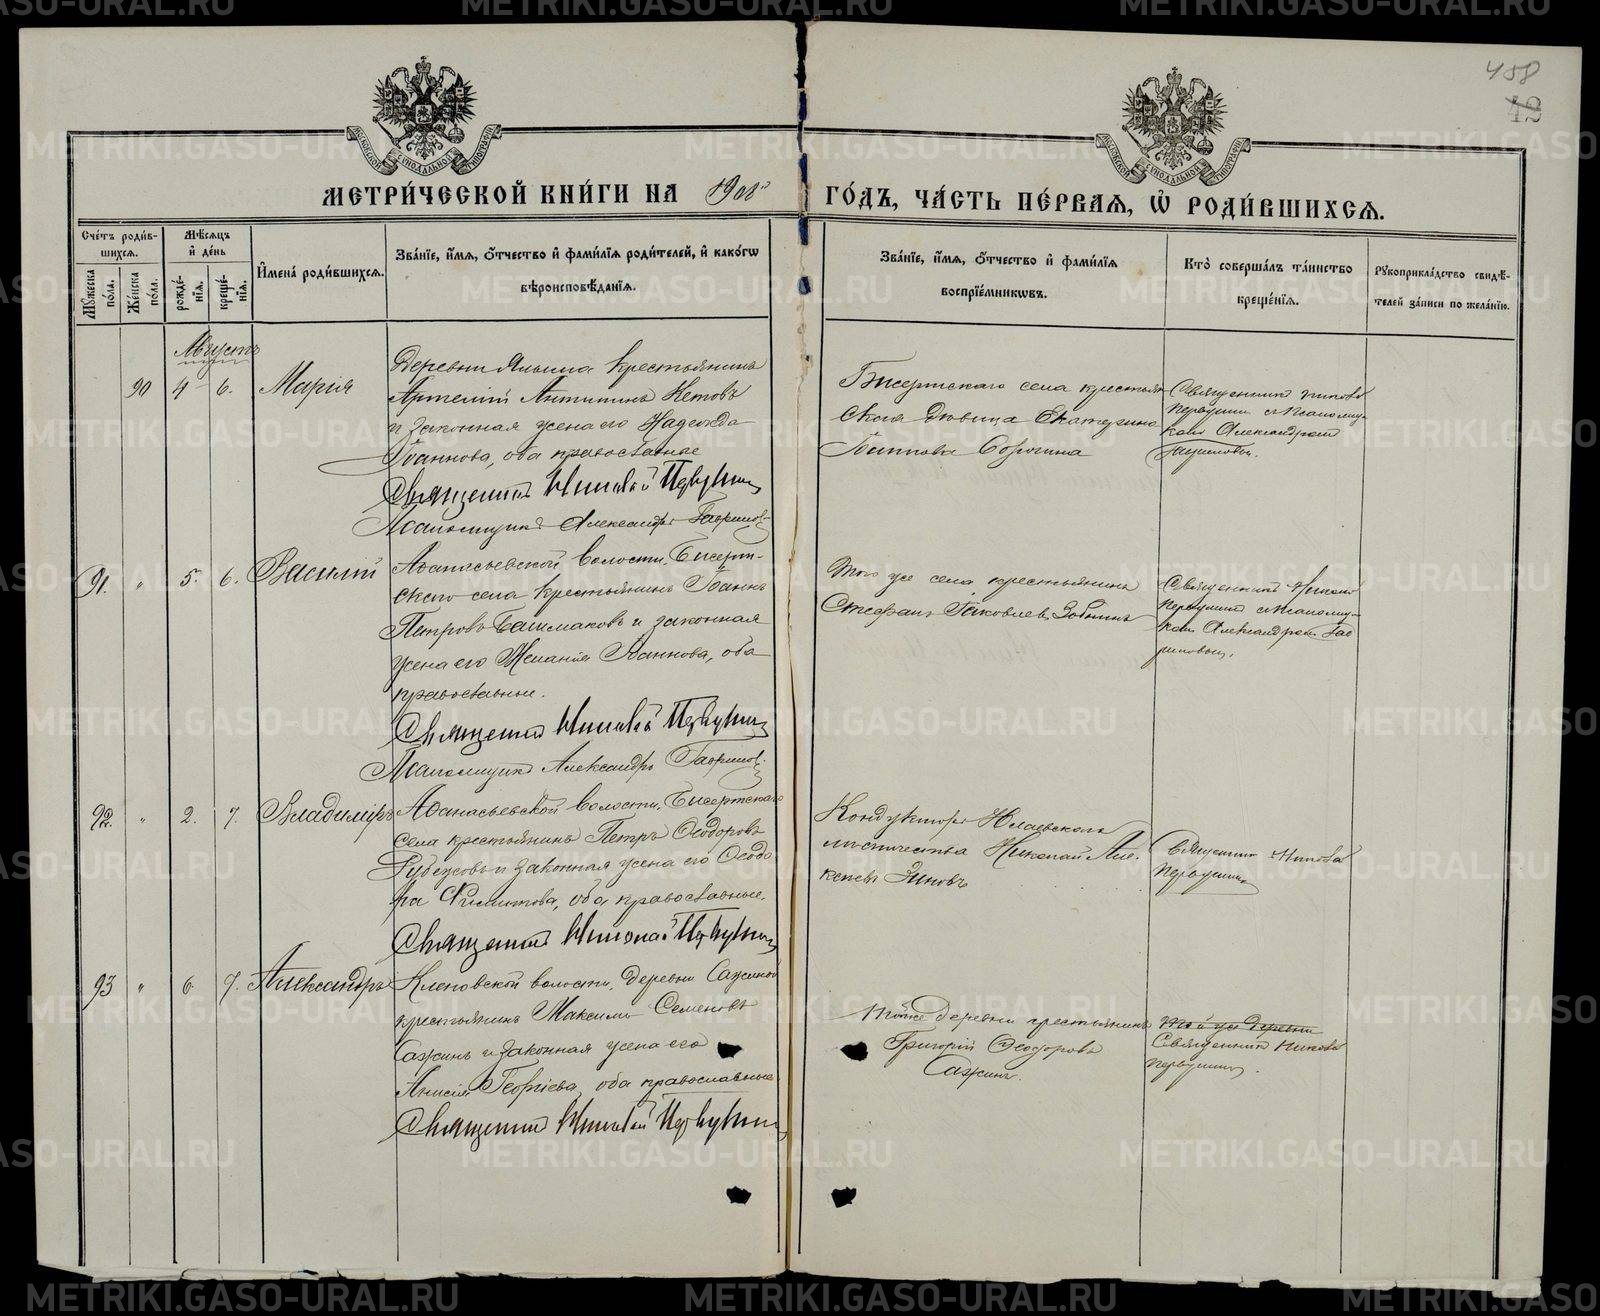 488
42
МОСКОВСКОЙ СѴНОДАЛЬНОЙ ТИПОГРАФІИ
МОСКОВСКОЙ СѴНОДАЛЬНОЙ ТИПОГРАФІИ
МЕТРИ́ЧЕСКОЙ КНИ́ГИ НА 1908й ГО́ДЪ, ЧА́СТЬ ПЕ́РВАѦ, Ѽ РОДИ́ВШИХСѦ.
Сче́тъ роди́в-
шихсѧ.
Мꙋ́жеска
по́ла.
Же́нска
по́ла.
Мѣ́сѧцъ
и҆ де́нь
рожде́-
нїѧ.
креще́-
нїѧ.
И҆мена̀ роди́вшихсѧ.
Зва́нїе, и҆́мѧ, ѻ҆́тчество и҆ фами́лїѧ роди́телей, и҆ како́гѡ
вѣроисповѣ́данїѧ.
Зва́нїе, и҆́мѧ, ѻ҆́тчество и҆ фами́лїѧ
воспрїе́мникѡвъ.
Кто̀ соверша́лъ та́инство
креще́нїѧ.
Рꙋкоприкла́дство свидѣ́-
телей за́писи по жела́нїю.
Августъ
90 4 6. Марія
Деревни Крестьянинъ
Артемій Антипинъ Кетовъ
и законная жена его Надежда
Іоаннова, оба православные
Священникъ Николай Первушинъ
Псаломщикъ Александръ Гавриловъ
Бисертскаго села крестьян
ская девица Екатерина
Іоаннова Сорокина
Священникъ Николай
Первушинъ съ псаломщи-
комъ Александромъ
Гавриловым.
91. " 5. 6. Василій
Афанасьевской волости, Бисерт-
скаго села крестьянинъ Іоаннъ
Петровъ Башмаковъ и законная
жена его Меланія Іоаннова, оба
православные.
Священникъ Николай Первушинъ
Псаломщикъ Александръ Гавриловъ
Того же села крестьянинъ
Стефанъ Іаковлевъ Зобнинъ
Священникъ Николай
Первушинъ съ псаломщи-
комъ Александромъ Гав
риловым.
92. " 2. 7. Владиміръ
Афанасьевской волости, Бисертскаго
села крестьянинъ Петръ Ѳеодоровъ
и законная жена его Ѳеодо
ра Филиппова, оба православные.
Священникъ Николай Первушинъ
Кондукторъ
лѣсничества Николай Але-
ксѣевъ
Священникъ Николай
Первушинъ
93 " 6. 7. Александръ
Кленовской волости, деревни Сажиной
крестьянинъ Максимъ Семеновъ
Сажинъ и законная жена его
Анисія Георгіева, оба православные
Священникъ Николай Первушинъ
Той же деревни крестьянинъ
Григорій Ѳеодоровъ
Сажинъ.
Той же деревни
Священникъ Николай
Первушинъ.
METRIKI.GASO-URAL.RU